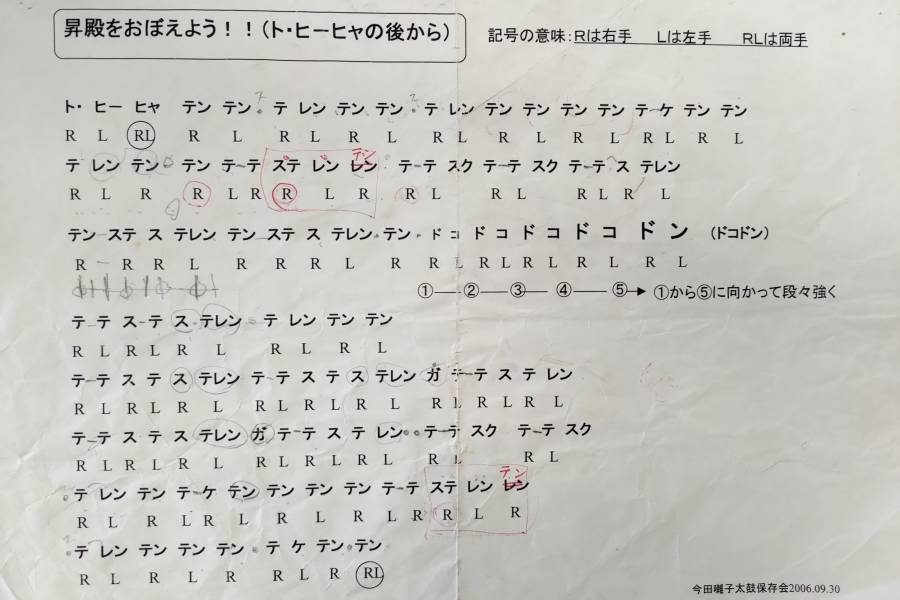 昇殿をおぼえよう！！（ト・ヒーヒャの後から）
記号の意味：Rは右手　Lは左手　RLは両手
ト・ ヒー ヒャ テン テン 。テ レン テン テン 。テ レン テン テン テン テン テーケ テン テン
R L RL R L R L R L R L R L R L R L R L
テ レン テン 。テン テーテ ステ レン レン テン テーテ スク テーテ スク テーテ ス テレン
R L R R L R R L R R L R L R L R L
テン ステ ス テレン テン ステ ス テレン 。テン 。ド コ ド コ ド コ ド コ ド ン （ドコドン）
R R R L R R R L R R L R L R L R L R L
①―②―③―④―⑤→ ①から⑤に向かって段々強く
テ ーテ ス ーテ ス テレン 。テ レン テン テン
R L R L R L R L R L
テ ーテ ス テ ス テレン テ ーテ ス テ ス テレン ガ テ ーテ ス テ レン
R L R L R L R L R L R L R L R L R L
テ ーテ ス テ ス テレン ガ テ ーテ ス テ レン 。。テ ーテ スク テ ーテ スク
R L R L R L R L R L R L R L R L
。テ レン テン テーケ テン テン テン テン テーテ ステ レン レン テン
R L R L R L R L R L R R L R
。テ レン テン テン テン 。テ ケ テン 。テン
R L R L R R L R RL
今田囃子太鼓保存会2006.09.30